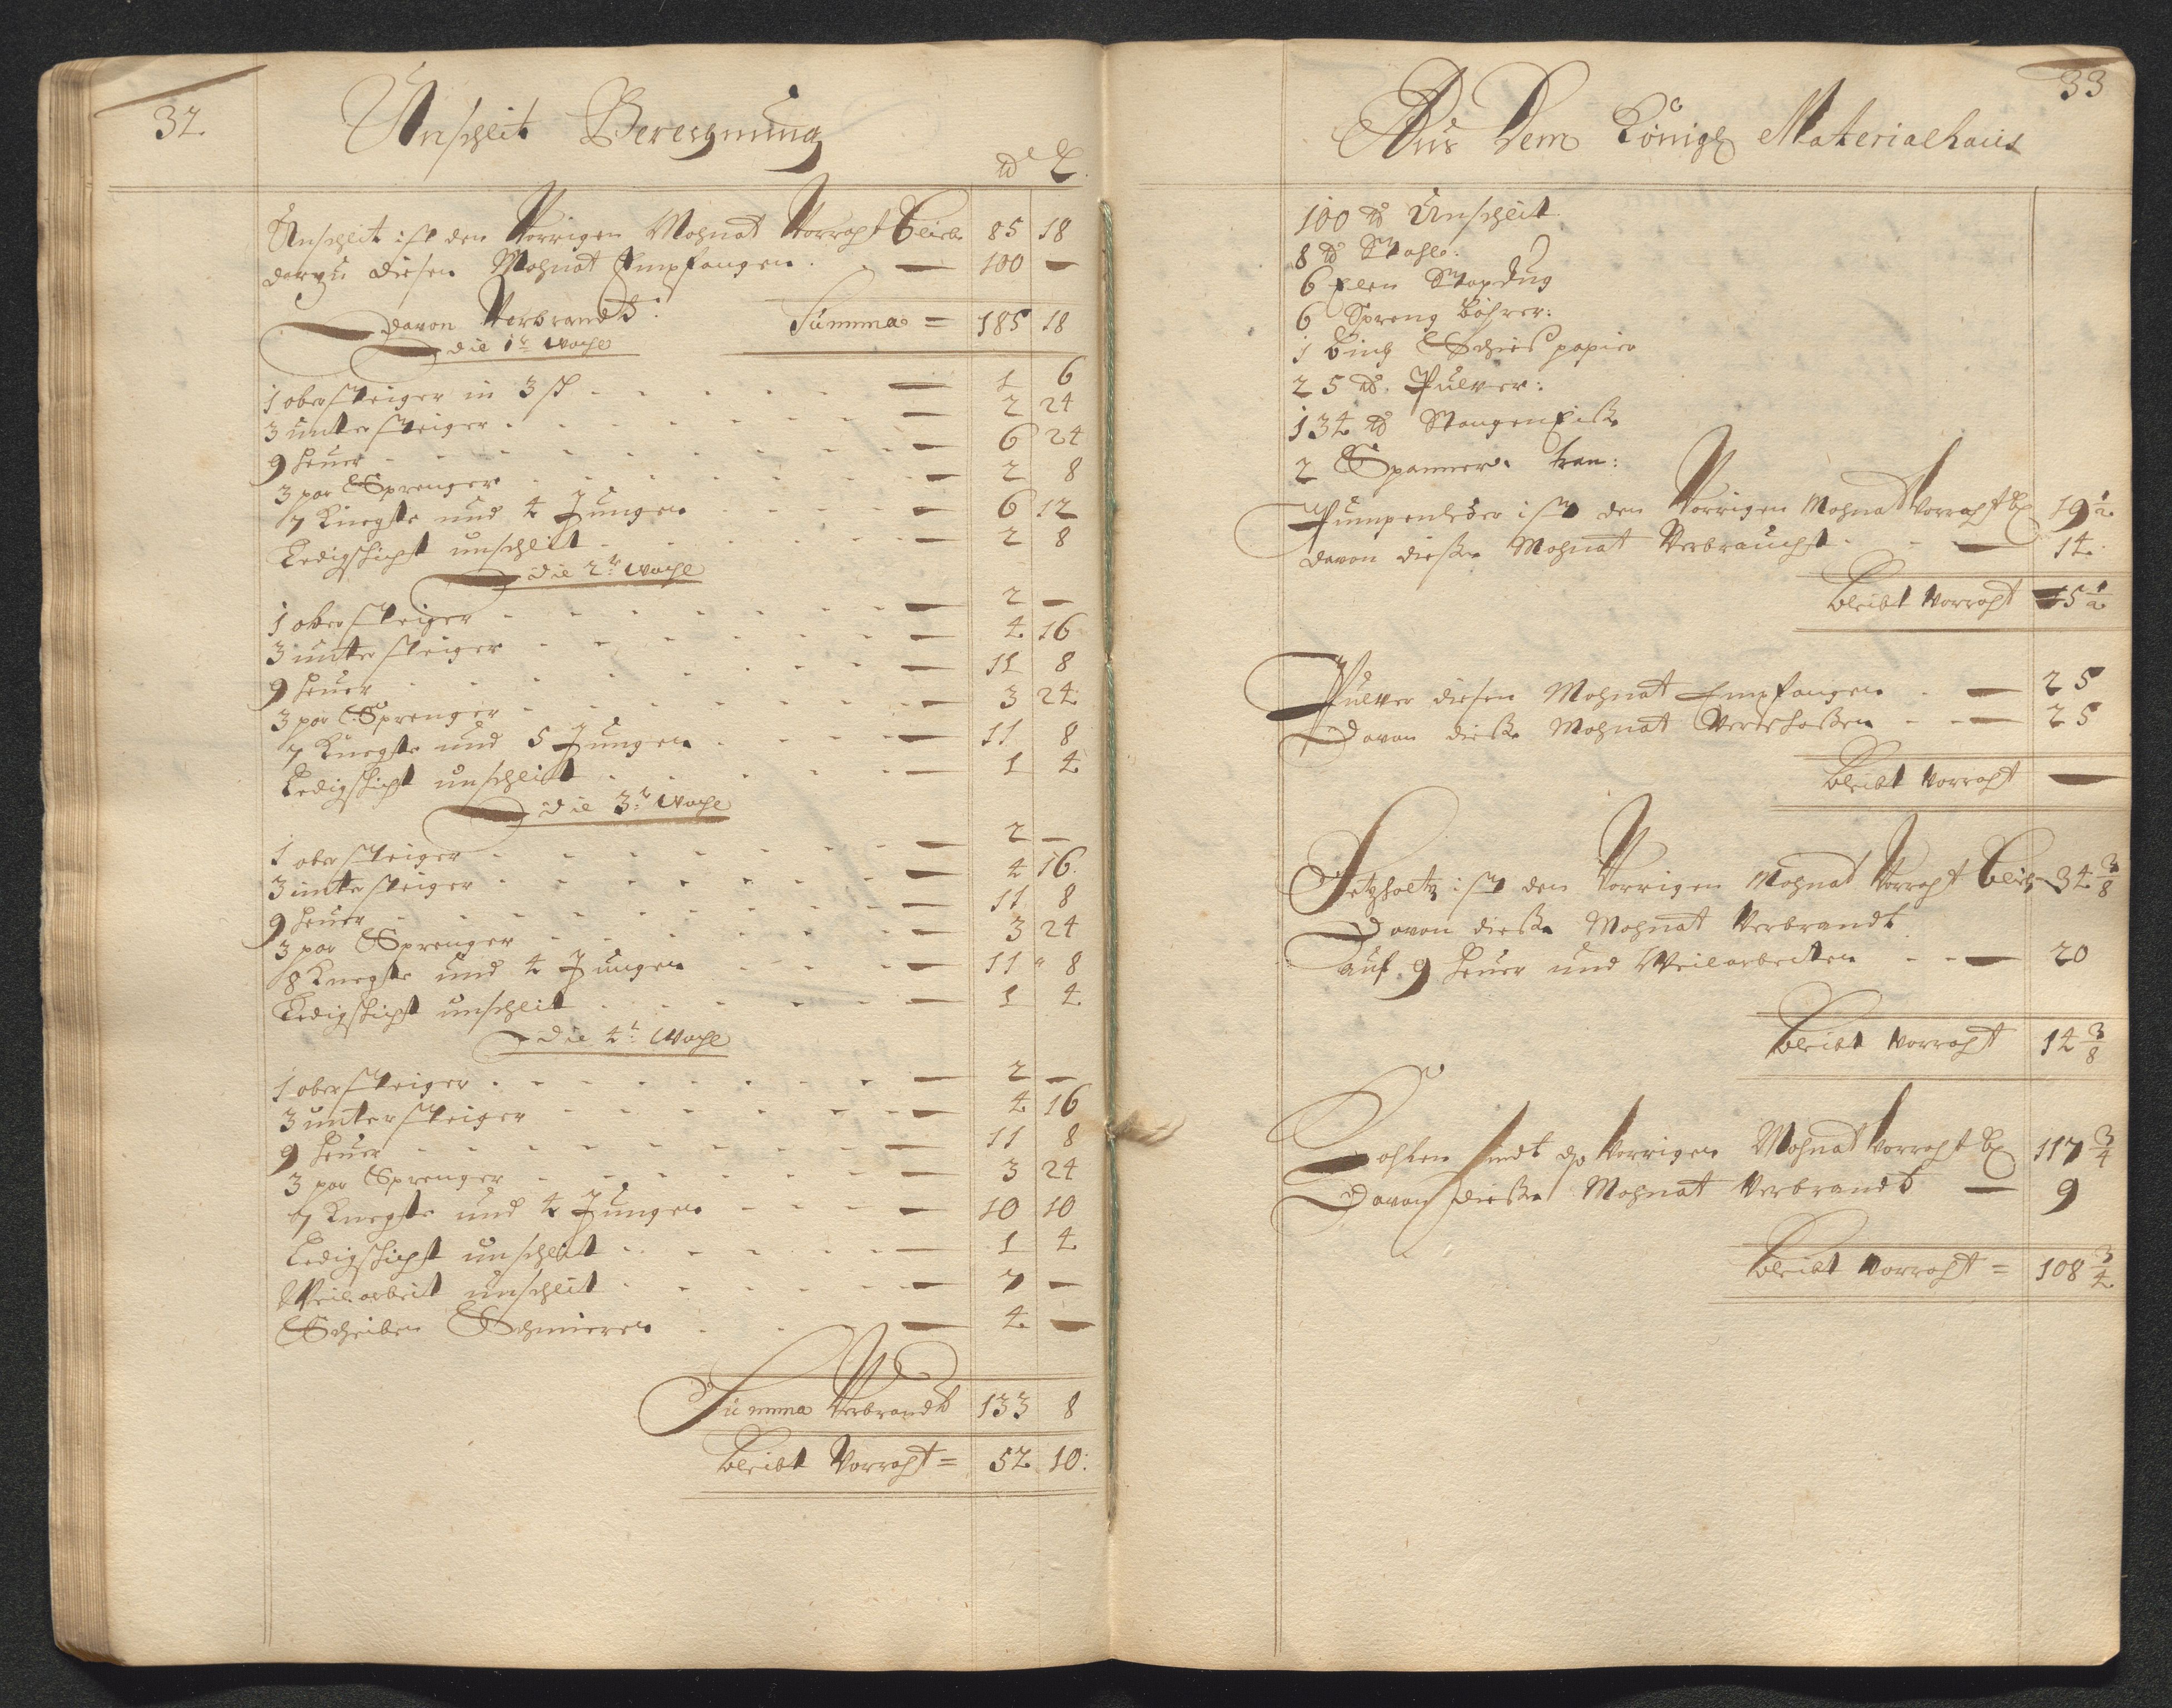 32.
Unschlit Berechnung
℔ L.
Unschlit ist den Vorrigen Mohnat Vorraht blieb 85 18
darzu diesen Mohnat Empfangen . — 100 —
davon Verbrandt: Summa = 185 18
die 1te Woche
1 obersteiger in 3 sch — 1 6
3 untersteiger — 2 24
9 heuer — 6 24
3 par Sprenger — 2 8
7 Knegte und 4 Jungen — 6 12
Ledigschicht unschlit — 2 8
die 2te Woche
1 obersteiger — 2 —
3 untersteiger — 4 16
9 heuer — 11 8
3 par Sprenger — 3 24
7 Knegte und 5 Jungen — 11 8
Ledigschicht unschlit — 1 4
die 3te Woche
1 obersteiger — 2 —
3 untersteiger — 4 16
9 heuer — 11 8
3 par Sprenger — 3 24
8 Knegte und 4 Jungen — 11 8
Ledigschicht unschlit — 1 4
die 4te Woche
1 obersteiger — 2 —
3 untersteiger — 4 16
9 heuer — 11 8
3 par Sprenger — 3 24
7 Knegte und 4 Jungen — 10 10
Ledigschicht unschlit — 1 4
Weilarbeit unschlit — 7 —
Scheiben Schmieren — 4 —
Summa Verbrandt 133 8
bleibt Vorraht = 52 10:
33
Aus Dem Königl Materialhaus
100 ℔ Unschlit
8 ℔ Stahl:
6 Elen Stapdug
6 Spreng bohrer:
1 buch Schies papier
25 ℔. Pulver:
134 ℔ Stangen Eissen
2 Spanner tran:
Pumpenleder ist den Vorrigen Mohnat Vorraht bl 19 1/2
davon diessen Mohnat Verbraucht — 14.
bleibt Vorraht 5 1/2
Pulver diesen Mohnat Empfangen — 25
Davon diessen Mohnat Verschossen — 25
bleibt Vorraht —
Setzholtz ist den Vorrigen Mohnat Vorraht blieb 34 3/8
Davon diessen Mohnat Verbrandt
auf 9 heuer und Weilarbeiten — 20
bleibt Vorraht 14 3/8
Kohlen sindt dn Vorrigen Mohnat Vorraht bl 117 3/4
Davon diessen Mohnat Verbrandt — 9
bleibt Vorraht = 108 3/4